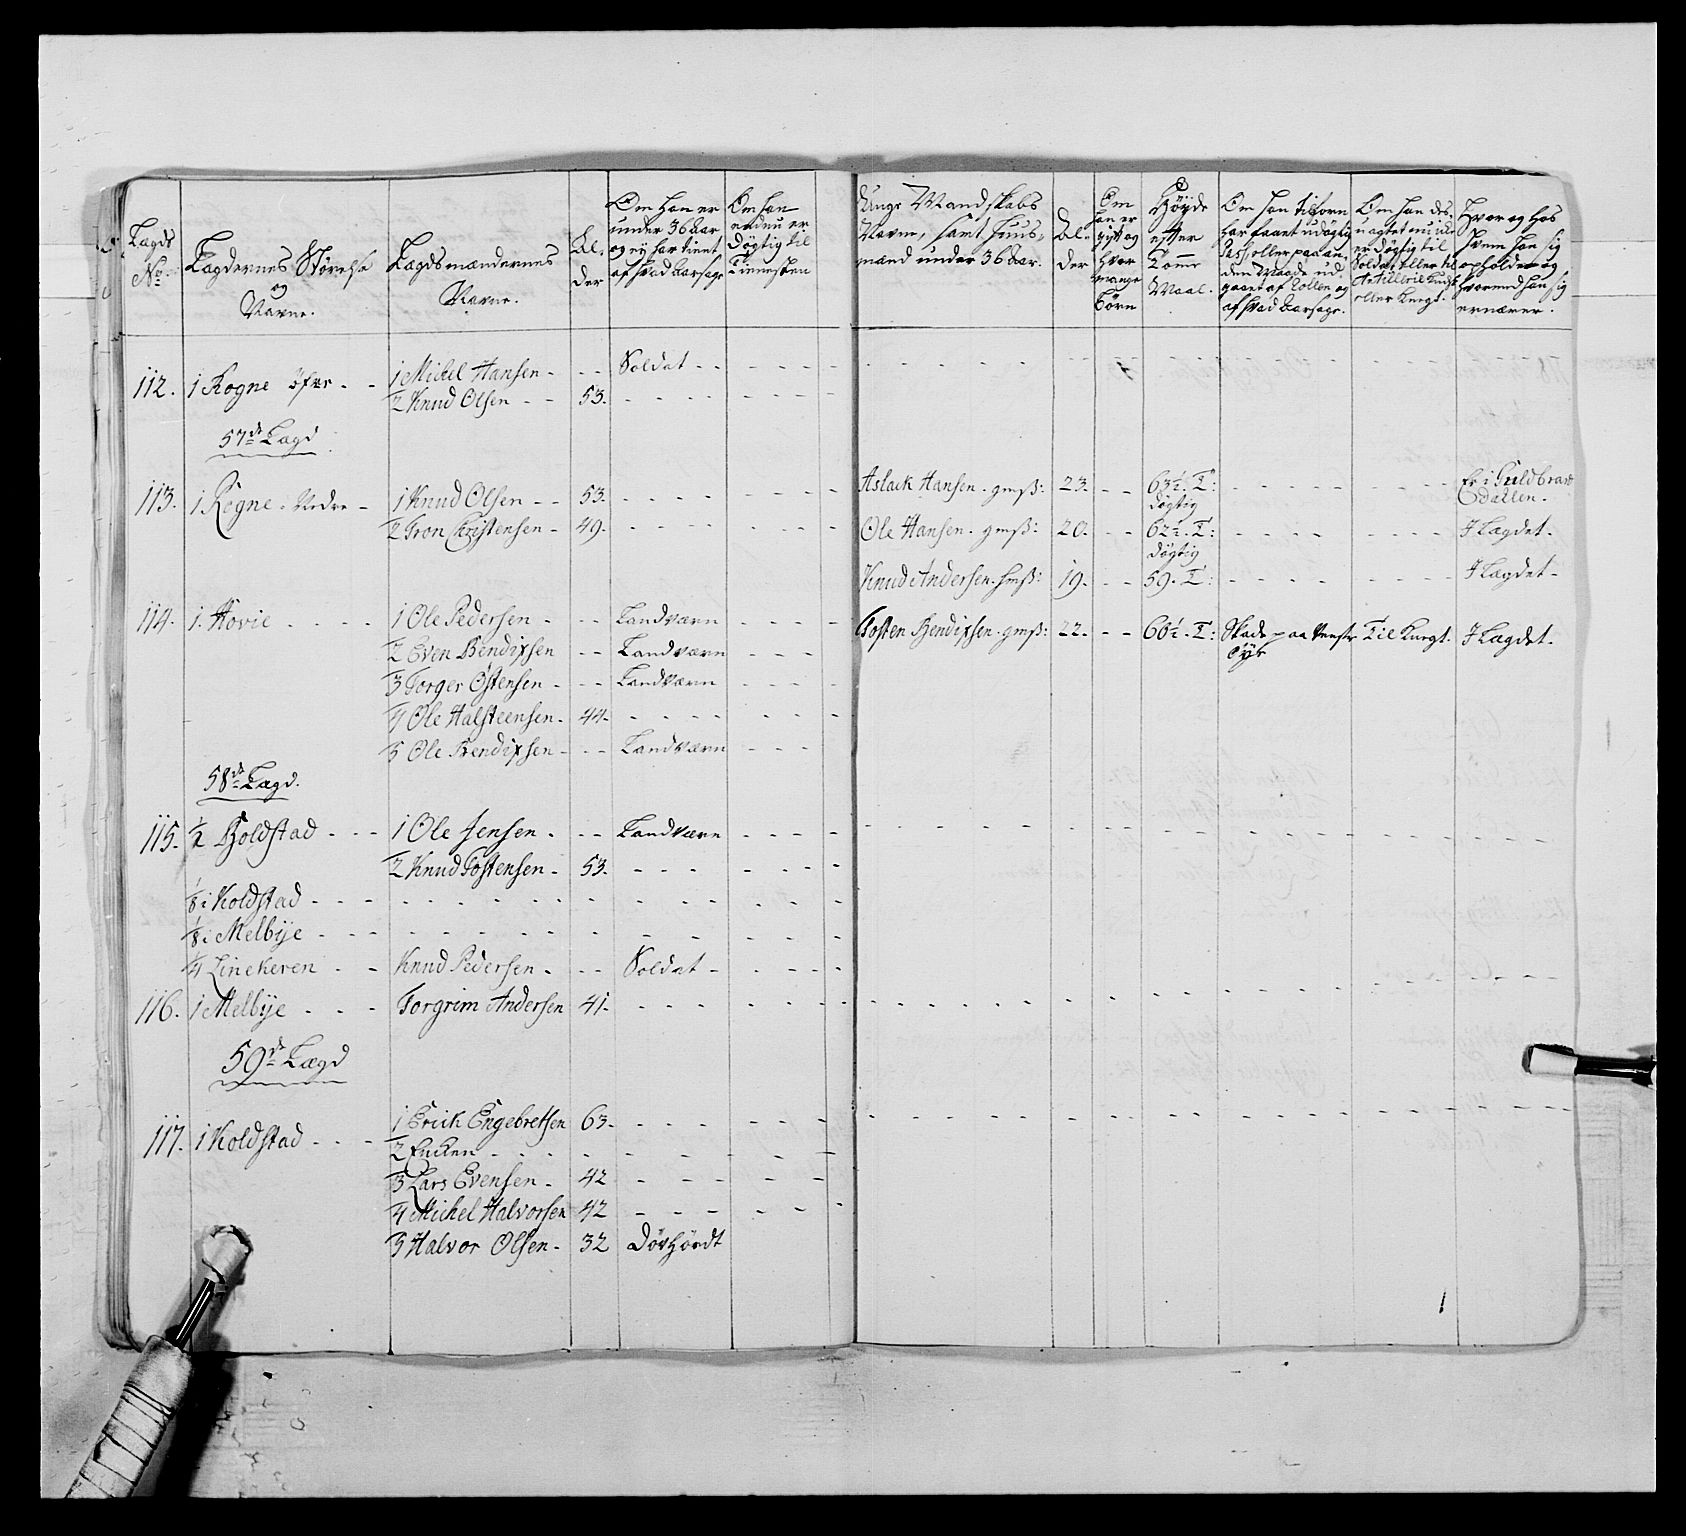 Lægds
No
Lægdernes Størrelse
og
Navne.
Lægdsmændernes
Navne.
Al-
der
Om han er
under 36 aar
og ej har tient
af hvad aarsage
Om han
endnu er
døgtig til
Tienesten
Unge Mandskabs
Navne, samt Huus-
mænd under 36 aar.
Al-
der
Om
han er
gift og
hvor
mange
børn
Høyde
efter
Tomme
Maal.
Om han tilforn
har faaet udøgtig
Pas, eller paa an-
den Maade ud-
gaaet af Rollen og
af hvad aarsage.
Om han des-
uagtet
er døgtig til
Soldat eller til
Artillerie Kudsk
eller Knegt.
Hvor og hos
hvem han sig
opholder og
hvormed han sig
ernærer.
112. 1 Rogne øfre - - 1 Michel Hansen - - - Soldat - -
2 Knud Olsen - - 53.
57de Lægd
113. 1 Rogne Nedre - 1 Knud Olsen - - 53. Aslack Hansen. gmss: 23. - - 63½. T: døgtig Er i Guldbrands Dallen.
2 Tron Christensen - 49. Ole Hansen. gmss: 20. - - 62½. T: døgtig I Lægdet.
Knud Andersen. hmss: 19. - - 59. T: I Lægdet -
114. 1. Hovie - - - - 1 Ole Pedersen - - - Landværn Tosten Bendixsen. gmss: 22. - - 60½. T: Skade paa Venstre Øye Til Knegt. I Lægdet.
2 Even Bendixsen - - Landværn
3 Torger Østensen - - - Landværn
4 Ole Halsteensen. 44.
5 Ole Bendixsen - - - Landværn
58de Lægd.
115. ½ Boldstad - - - 1 Ole Jensen. - - Landværn
2 Knud Tostensen - 53.
⅛ i Koldstad - - -
⅛ i Melbÿe - - -
¼ Linekeren - - Knud Pedersen - - - Soldat -
116. 1 Melbÿe - - - Torgrim Andersen 41.
59de Lægd
117. 1 Koldstad - - - 1 Erick Engebretsen 63.
2 Encken - - -
3 Lars Evensen - 42
4 Michel Halvorsen 42
5 Halvor Olsen - 32 Døvhørdt